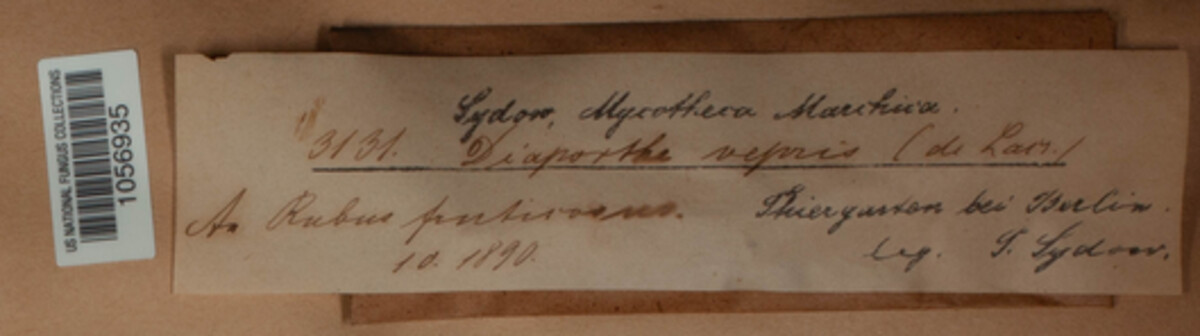 US NATIONAL FUNGUS COLLECTIONS
1056935
Sydow, Mycotheca Marchica.
3131. Diaporthe vepris (de Lacr.)
An Rubus fruticosus.
10. 1890.
Thiergarten bei Berlin.
leg. P. Sydow.